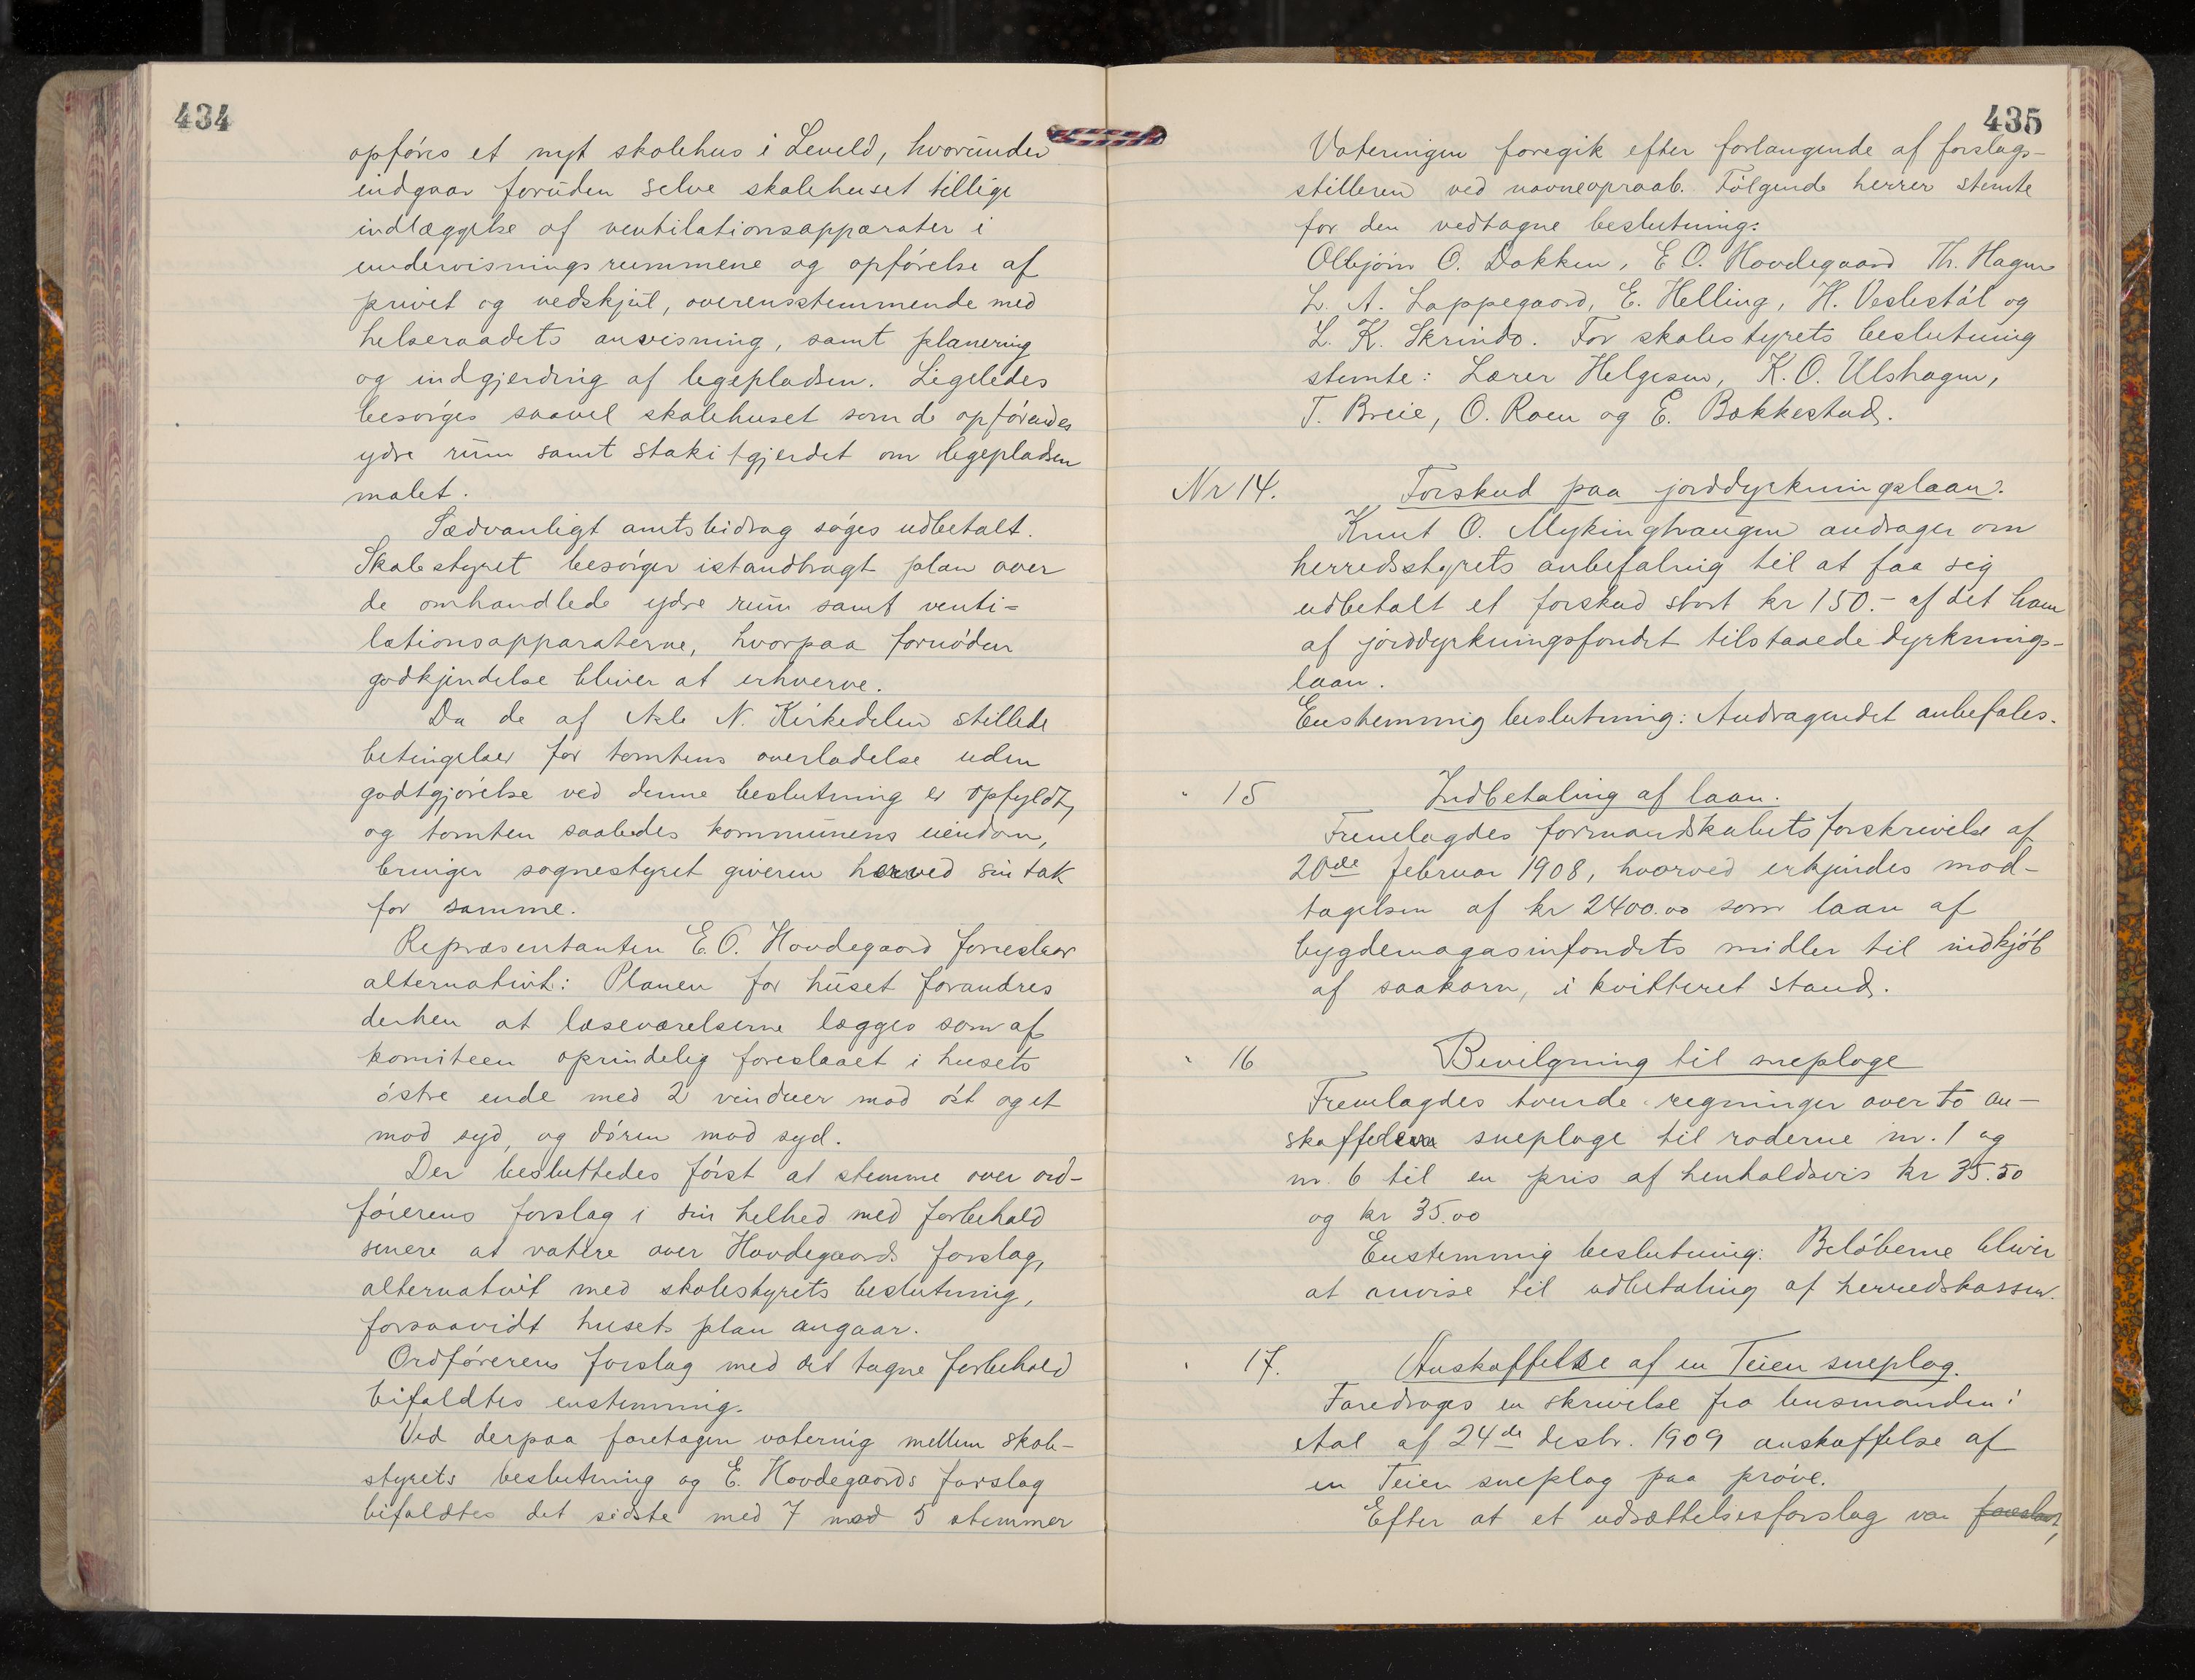 434
opføres et nyt skolehus i Leveld, hvorunder
indgaar foruden selve skolehuset tillige
indlæggelse af ventilationsapparater i
undervisningsrummene og opførelse af
privet og vedskjul, overensstemmende med
helseraadets anvisning, samt planering
og indgjerding af legepladsen. Ligeledes
besørges saavel skolehuset som de opførendes
ydre rum samt stakitgjerdet om legepladsen
malet.
Sædvanligt amtsbidrag søges udbetalt.
Skolestyret besørger istandbragt plan over
de omhandlede ydre rum samt venti=
lationsapparaterne, hvorpaa fornøden
godkjendelse bliver at erhverve.
Da de af Asle N. Kirkedelen stillede
betingelser for tomtens overladelse uden
godtgjørelse ved denne beslutning er opfyldt,
og tomten saaledes kommunens eiendom,
bringer sognestyret giveren herved sin tak
for samme.
Repræsentanten E. O. Hovdegaard foreslaar
alternativt: Planen for huset forandres
derhen at læseværelserne lægges som af
komiteen oprindelig foreslaaet i husets
østre ende med 2 vinduer mod øst og et
mod syd, og døren mod syd.
Der besluttedes først at stemme over ord-
førerens forslag i sin helhed med forbehold
senere at votere over Hovdegaards forslag,
alternativt med skolestyrets beslutning,
forsaavidt husets plan angaar.
Ordførerens forslag med det tagne forbehold
bifaldtes enstemmig.
Ved derpaa foretagen votering mellem skole-
styrets beslutning og E. Hovdegaards forslag
bifaldtes det sidste med 7 mod 5 stemmer
435
Voteringen foregik efter forlangende af forslags-
stilleren ved navneopraab. Følgende herrer stemte
for den vedtagne beslutning:
Olbjørn O. Dokken, E O. Hovdegaard Th. Hagen
L. A. Lappegaard, E. Helling, H. Veslestøl og
L. K. Skrindo. For skolestyrets beslutning
stemte: Lærer Helgesen, K. O. Ulshagen,
T. Breie, O. Roen og E. Bakkestad.
Nr 14. Forskud paa jorddyrkningslaan.
Knut O. Mykinghaugen andrager om
herredsstyrets anbefaling til at faa sig
udbetalt et forskud stort kr 150.- af det ham
af jorddyrkningsfondet tilstaaede dyrknings-
laan.
Enstemmig beslutning: Andragendet anbefales.
" 15 Indbetaling af laan.
Fremlagdes formandskabets forskrivelse af
20de februar 1908, hvorved erkjendes mod-
tagelsen af kr 2400.00 som laan af
bygdemagasinfondets midler til indkjøb
af saakorn, i kvitteret stand.
" 16 Bevilgning til sneploge
Fremlagdes tvende regninger over to an-
skaffede sneploge til roderne nr. 1 og
nr. 6 til en pris af henholdsvis kr 35.50
og kr 35.00
Enstemmig beslutning: Beløbene bliver
at anvise til udbetaling af herredskassen.
" 17. Anskaffelse af en Teien sneplog.
Foredroges en skrivelse fra lensmanden i
Aal af 24de desbr. 1909 anskaffelse af
en Teien sneplog paa prøve.
Efter at et udsættelsesforslag var foreslaat,